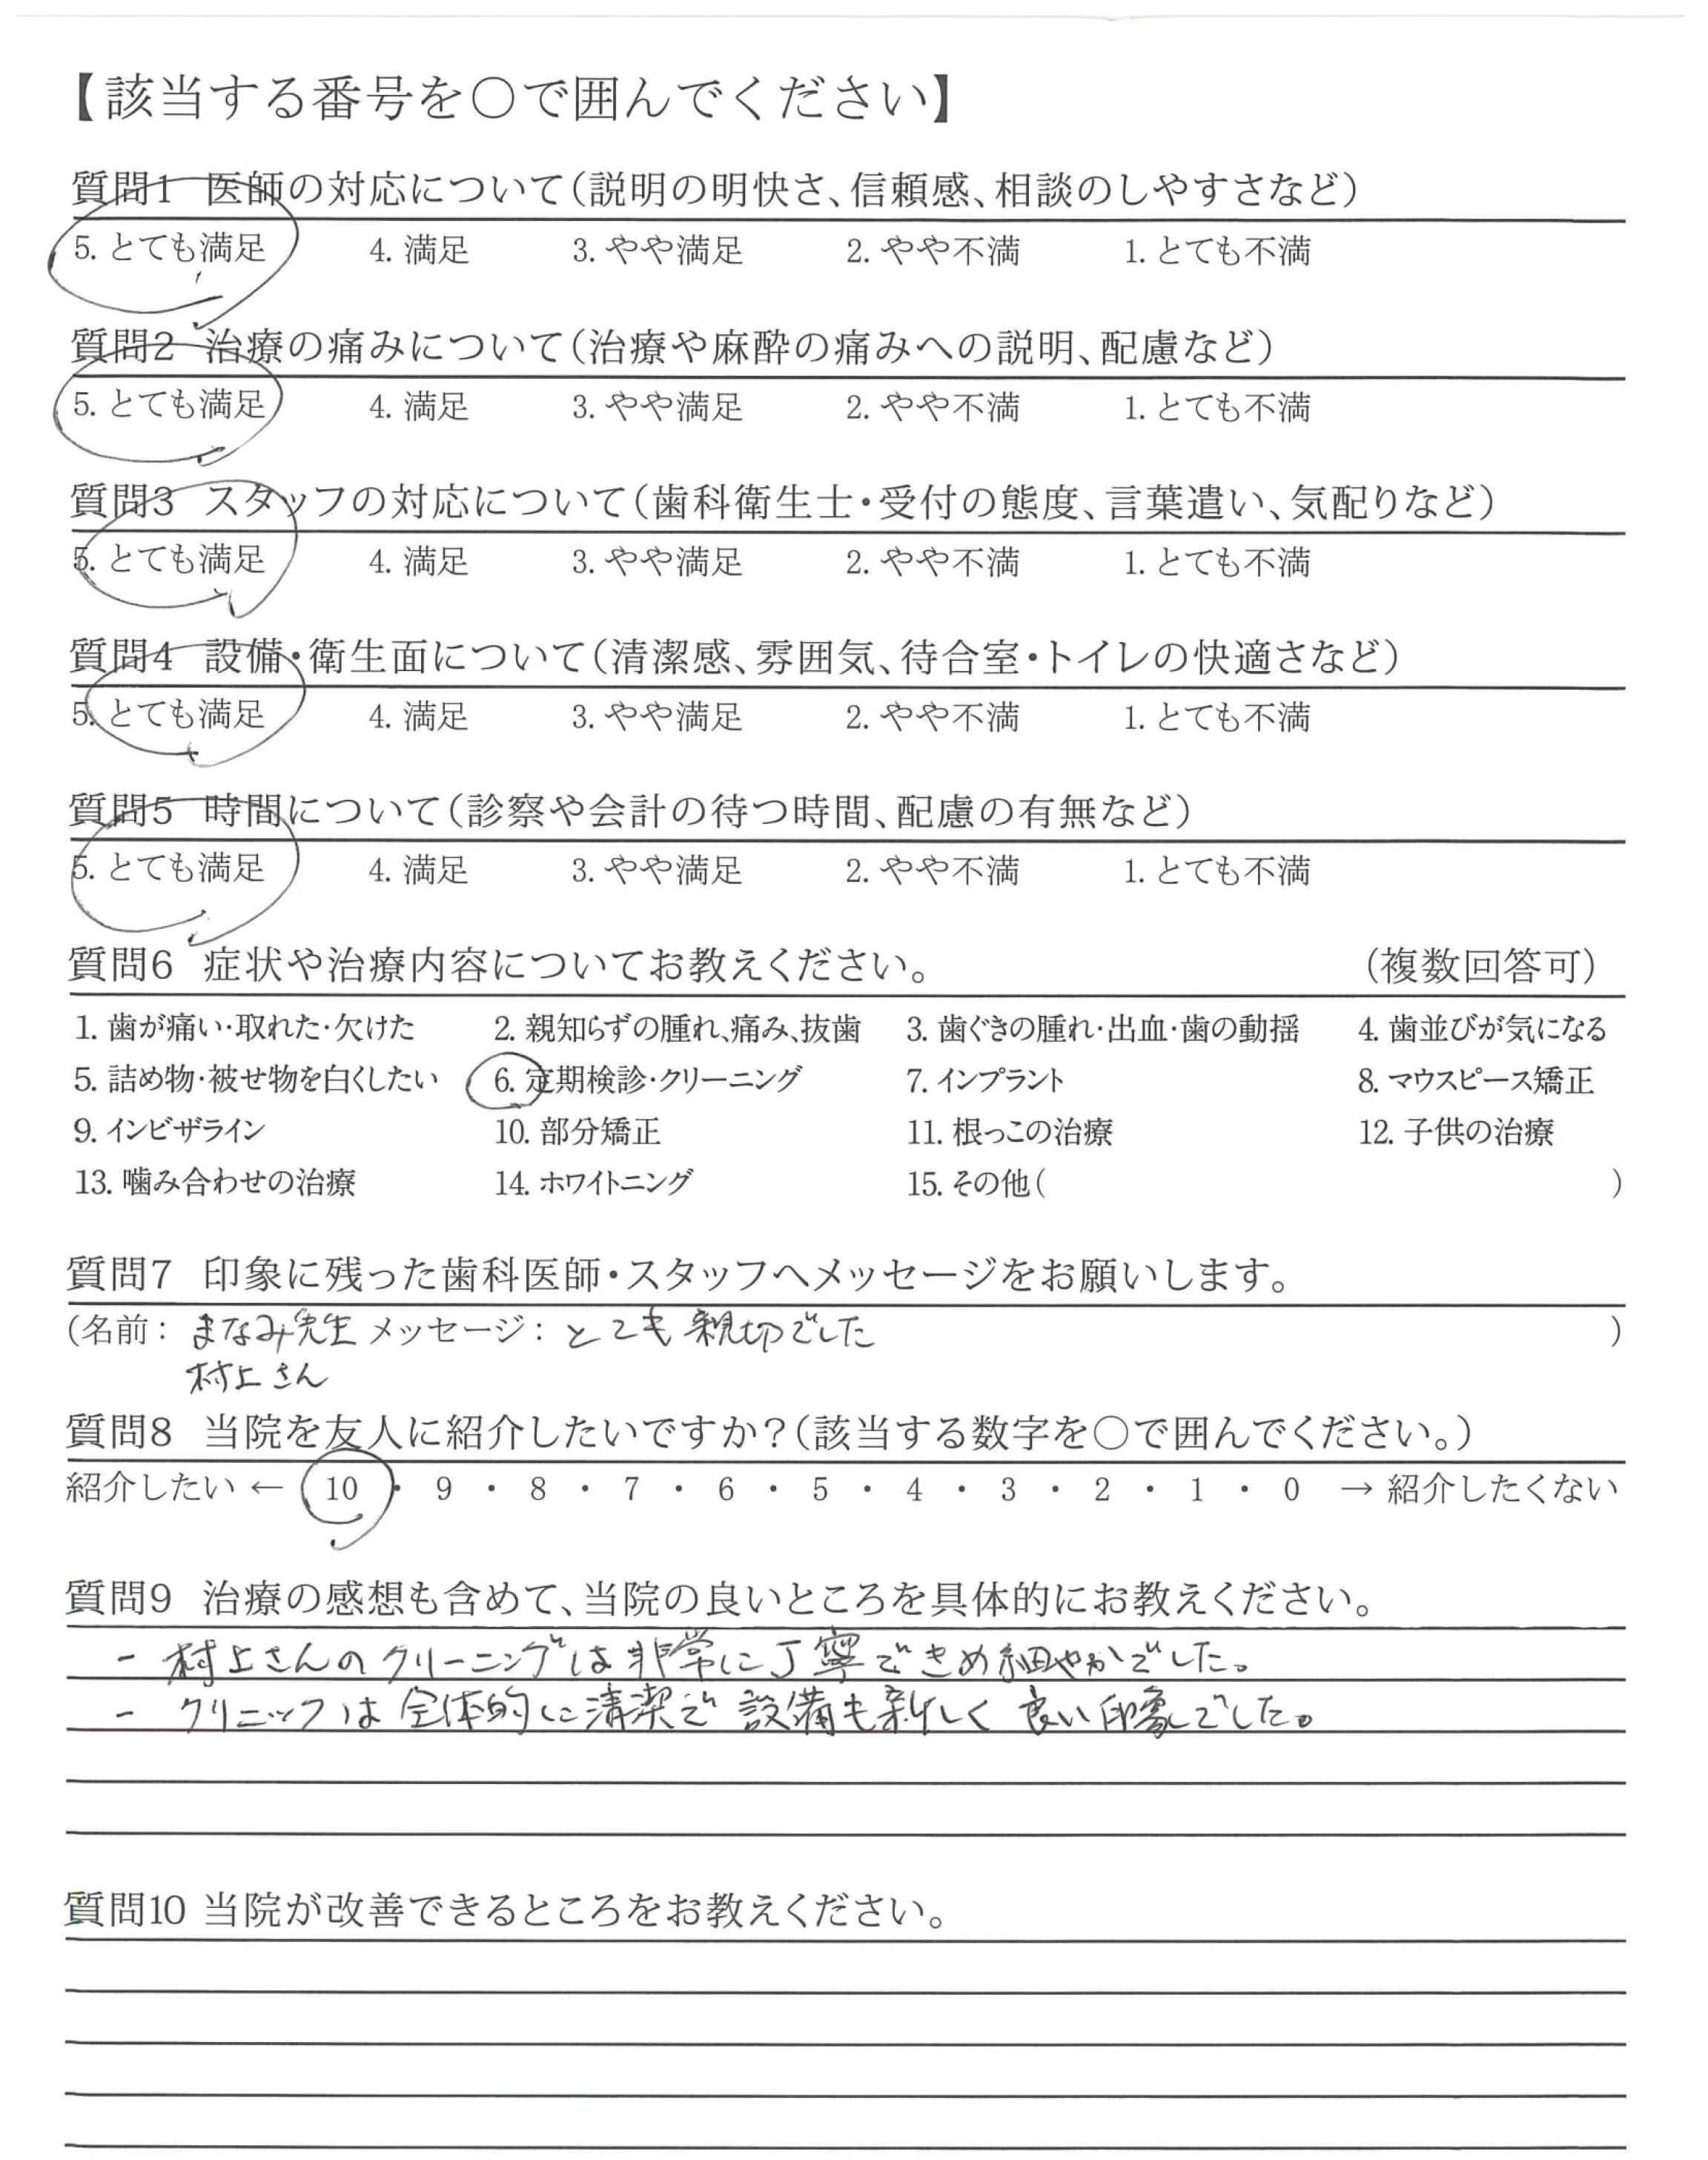 【該当する番号を〇で囲んでください】
質問1 医師の対応について（説明の明快さ、信頼感、相談のしやすさなど）
5. とても満足 4. 満足 3. やや満足 2. やや不満 1. とても不満
質問2 治療の痛みについて（治療や麻酔の痛みへの説明、配慮など）
5. とても満足 4. 満足 3. やや満足 2. やや不満 1. とても不満
質問3 スタッフの対応について（歯科衛生士・受付の態度、言葉遣い、気配りなど）
5. とても満足 4. 満足 3. やや満足 2. やや不満 1. とても不満
質問4 設備・衛生面について（清潔感、雰囲気、待合室・トイレの快適さなど）
5. とても満足 4. 満足 3. やや満足 2. やや不満 1. とても不満
質問5 時間について（診察や会計の待つ時間、配慮の有無など）
5. とても満足 4. 満足 3. やや満足 2. やや不満 1. とても不満
質問6 症状や治療内容についてお教えください。 （複数回答可）
1. 歯が痛い・取れた・欠けた 2. 親知らずの腫れ、痛み、抜歯 3. 歯ぐきの腫れ・出血・歯の動揺 4. 歯並びが気になる
5. 詰め物・被せ物を白くしたい 6. 定期検診・クリーニング 7. インプラント 8. マウスピース矯正
9. インビザライン 10. 部分矯正 11. 根っこの治療 12. 子供の治療
13. 噛み合わせの治療 14. ホワイトニング 15. その他（ ）
質問7 印象に残った歯科医師・スタッフへメッセージをお願いします。
（名前：まなみ先生 メッセージ：とても親切でした ）
村上さん
質問8 当院を友人に紹介したいですか？（該当する数字を〇で囲んでください。）
紹介したい ← 10 ・ 9 ・ 8 ・ 7 ・ 6 ・ 5 ・ 4 ・ 3 ・ 2 ・ 1 ・ 0 → 紹介したくない
質問9 治療の感想も含めて、当院の良いところを具体的にお教えください。
- 村上さんのクリーニングは非常に丁寧できめ細やかでした。
- クリニックは全体的に清潔で設備も新しく良い印象でした。
質問10 当院が改善できるところをお教えください。